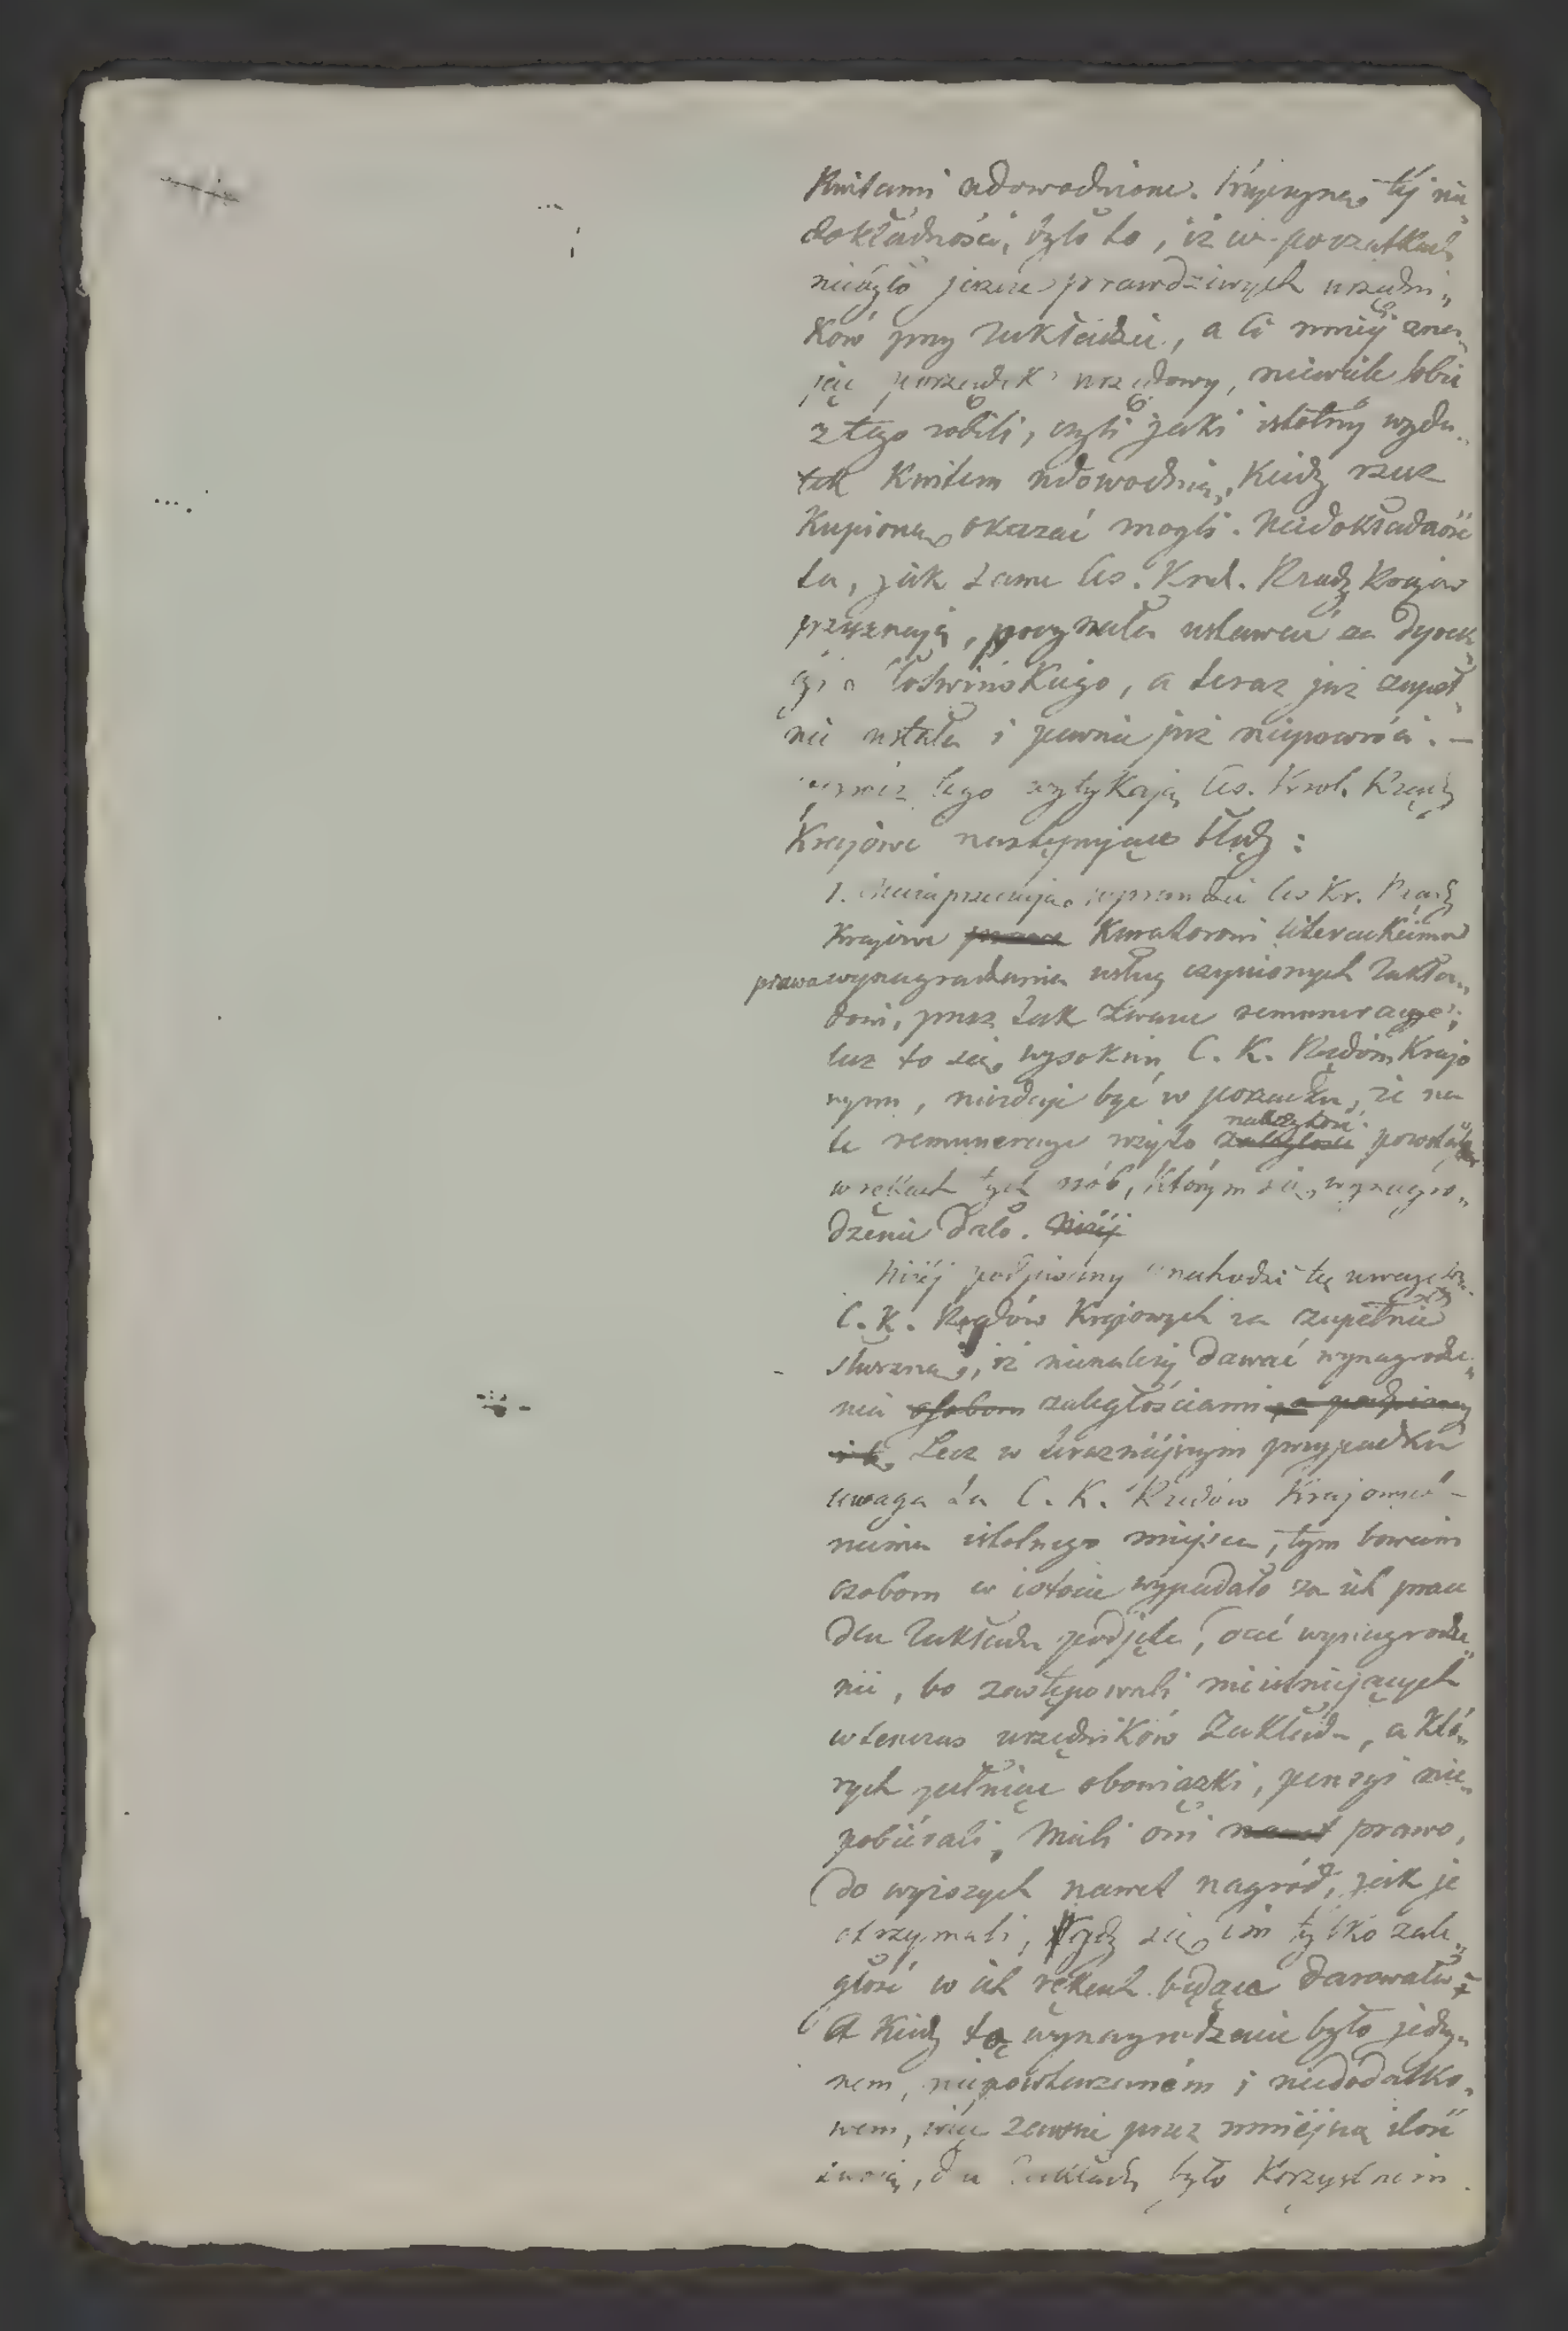 Kwitami udowodnione. Przyczyną tej nie„
dokładności, było to, iż w początkach
niebyło jeszcze prawdziwych urzędni„
ków przy Zakładzie, a ci mniej zna„
jąc porządek urzędowy, niewiele sobie
z tego robili, czyli jaki istotny wyda„
tek Kwitem udowodnią, Kiedy rzecz
Kupioną okazać mogli. Niedokładność
ta, jak same Ces. Król. Rządy Krajow
przyznają, poczynała ustawać za Dyrek„
cyi Słotwińskiego, a teraz już zupeł„
nie ustała i pewnie już niepowróci. –
tego wytykają Ces. Król. Rządy
Krajowe następujące błędy:
1. Niezaprzeczają wprawdzie Ces Kr. Rządy
Krajowe prawa Kuratorowi literackiemu
prawa wynagradzania usług czynionych Zakła„
dowi, przez tak zwane remuneracye;
lecz to się wysokim C. K. Rządom Krajo
wym, niezdaje być w porządku, że na
te remuneracye użyto zaległości należytość powstałe
w rękach tych osób, którym się wynagro„
dzenie dało. Niżej
Niżej podpisany znachodzi tę uwagę
C. K. Rządów Krajowych za zupełnie
słuszną, iż nienależy dawać wynagrodze„
nia osobom zaległościami, a podpisany
Lecz w teraźniejszym przypadku
uwaga ta C. K. Rządów Krajowych –
niema istotnego miejsca, tym bowiem
osobom w istocie wypadało za ich prace
dla Zakładu podjęte, dać wynagrodze„
nie, bo zastępowali nieistniejących
wtenczas urzędników Zakładu, a któ„
rych pełniąc obowiązki, pensyi nie„
pobiérali. Mieli oni nawet prawo,
do wyższych nawet nagród, jak je
otrzymali, gdy się im tylko zale„
głość w ich rękach będąca darowała
A Kiedy to wynagrodzenie było jedy„
nem, niepowtarzaném i niedodatko„
wem, więc zawsze przez mniejszą ilość
swoją, dla Zakładu było Korzystném.